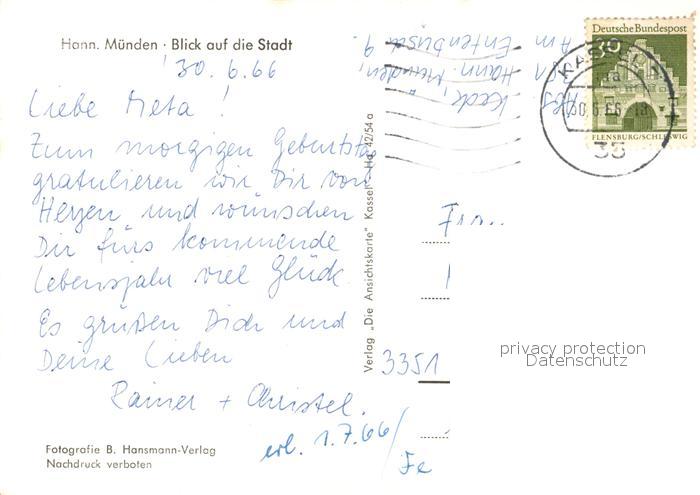 Hann. Münden · Blick auf die Stadt
30.6.66
Liebe Meta!
Zum morgigen Geburtstag
gratulieren wir Dir von
Herzen und wünschen
Dir fürs kommende
Lebensjahr viel Glück.
Es grüßen Dich und
Deine Lieben
Rainer + Christel.
erl. 1.7.66/
Fe
Fotografie B. Hansmann-Verlag
Nachdruck verboten
Verlag „Die Ansichtskarte" Kassel Ha 42/54 a
Abs.
Keck,
Hann. Münden,
Am Entenbusch 9.
Deutsche Bundespost
30
FLENSBURG/SCHLESWIG
KASSEL
30.6.66
35
Frau
3351
privacy protection
Datenschutz